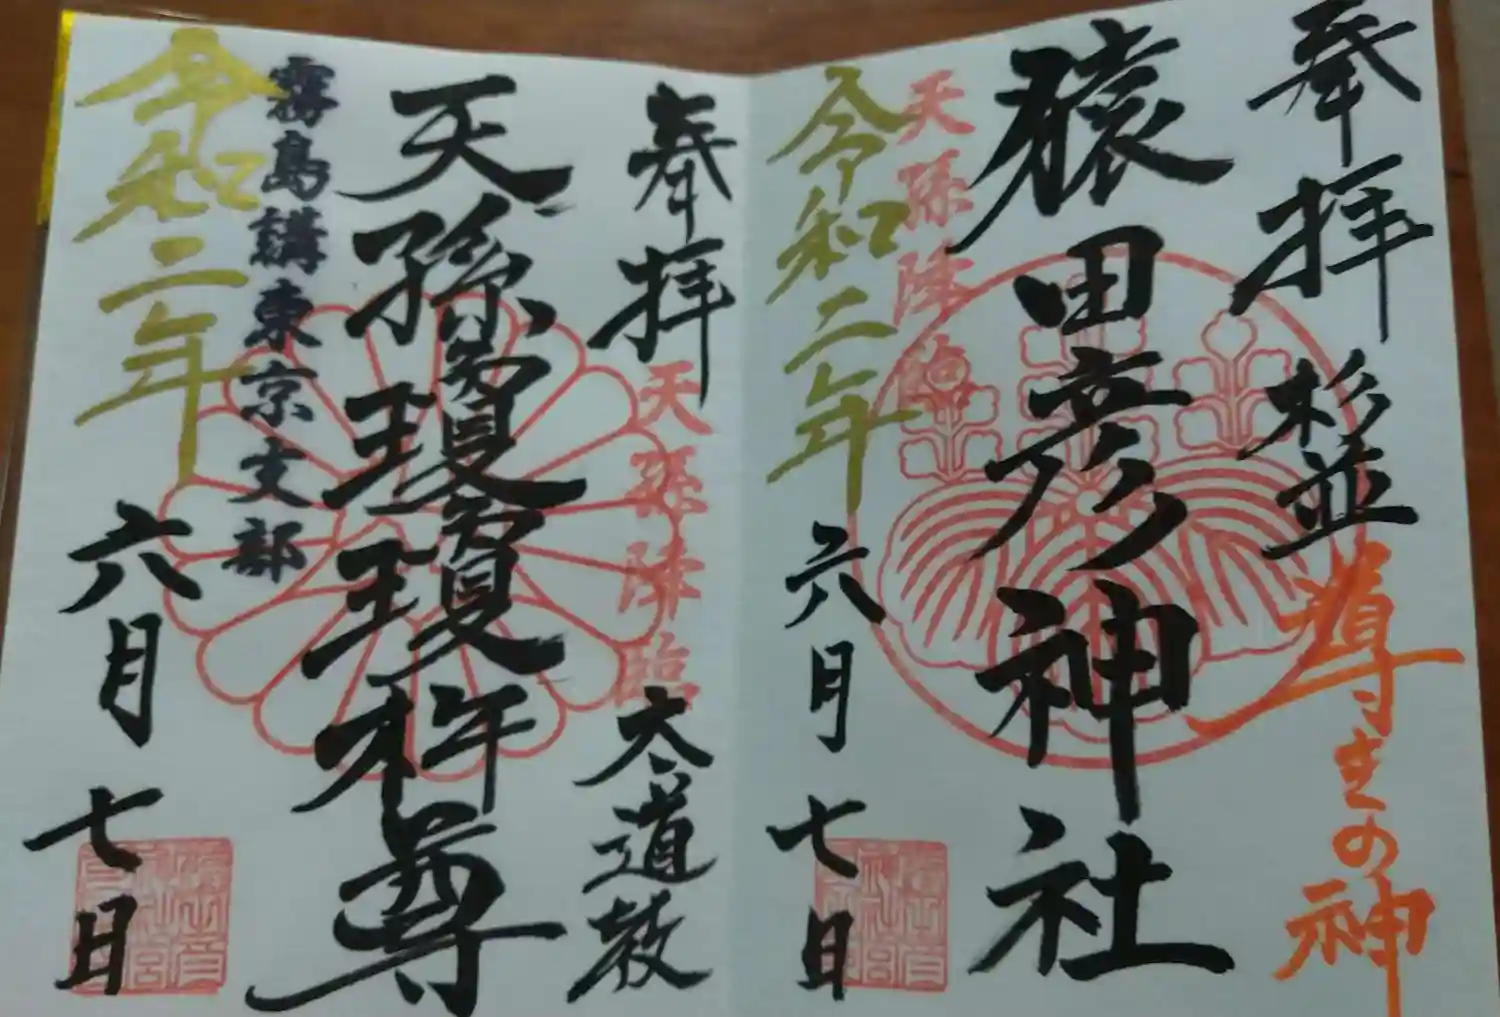 奉拝 杉並
尊きの神
猿田彦神社
天孫降臨
令和二年
六月七日
奉拝
天孫降臨
大道教
天孫瓊瓊杵尊
霧島講東京支部
令和二年
六月七日